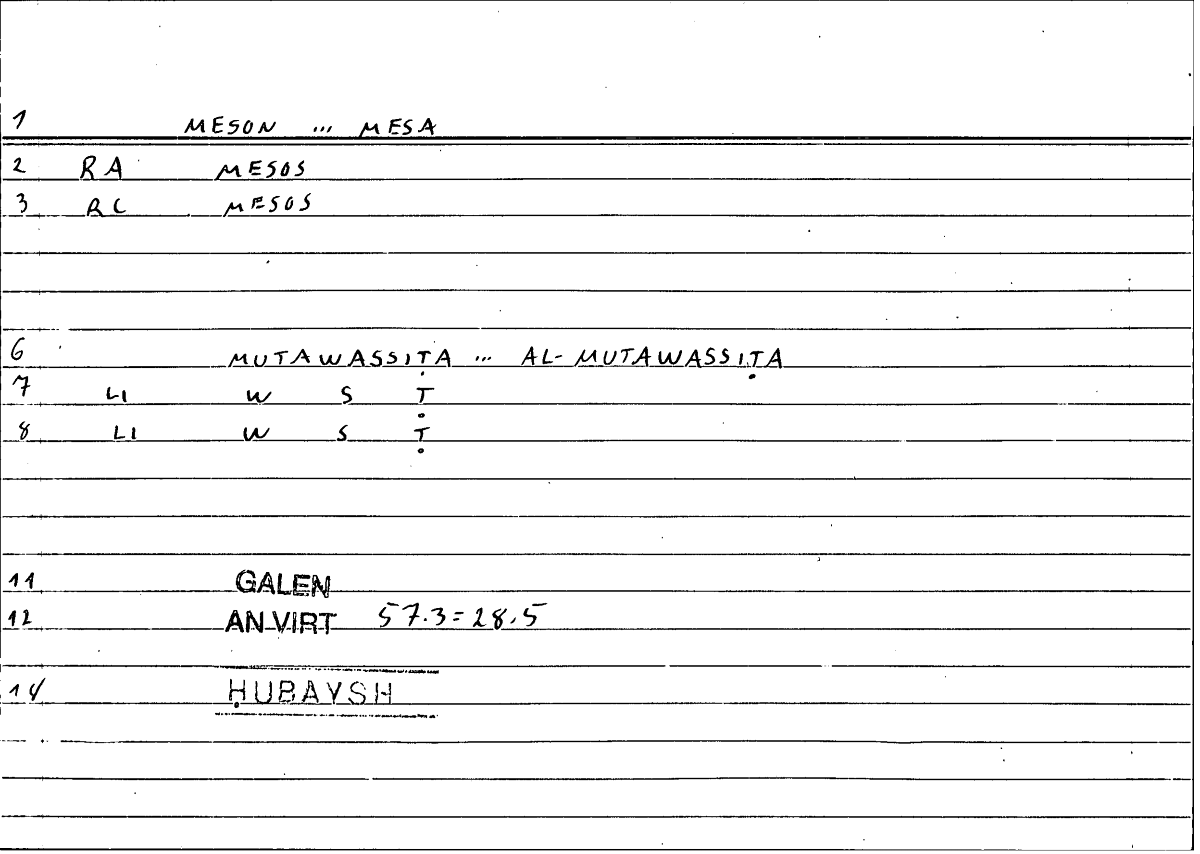 1 MESON ... MESA
2 RA MESOS
3 RC MESOS
6 MUTAWASSIṬA ... AL-MUTAWASSIṬA
7 LI W S Ṭ
8 LI W S Ṭ
11 GALEN
12 AN.VIRT 57.3=28.5
14 ḤUBAYSH